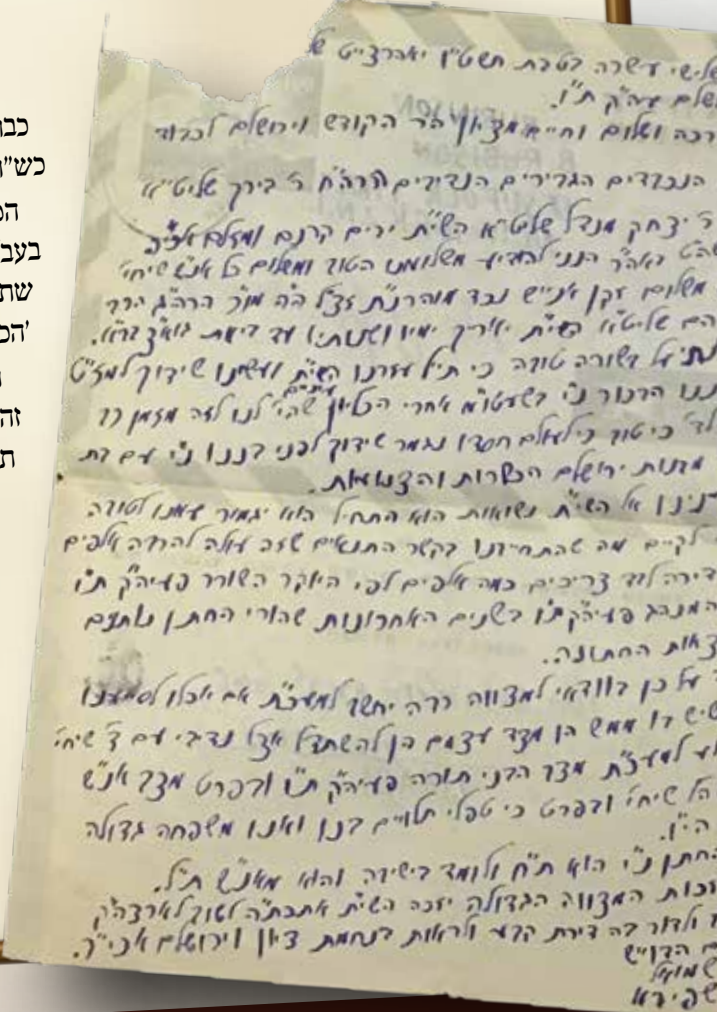 שלישי עשרה בטבת תשט"ו יאהרצייט ש
שלם עיה"ק ת"ו.
רכה ושלום וחיים מציון הר הקודש וירושלם לכבוד
הנכבדים הגבירים הנדיבים הרה"ח ר' בירך שליט"א
ר' יצחק מנדל שליט"א השי"ת ירים קרנם ומזלם אכי"ר
באה"ר הנני להודיע משלומנו הטוב ומשלום כל אנ"ש שיחי'
משלום זקן אנ"ש נכד מוהרנ"ת זצ"ל ה"ה מו"ר הרה"ג הרר
הם שליט"א השי"ת יאריך ימיו ושנותיו עד ביאת גוא"צ בב"א.
על בשורה טובה כי ת"ל עזרנו השי"ת ועשינו שידוך למז"ט
בננו הבכור נ"י בשעטו"מ אחרי הכליון עינים שהי' לנו לזה מזמן רב
כי טוב כי לעולם חסדו נגמר שידוך לפני בננו נ"י עם בת
מבנות ירושלם הכשרות והצנועות.
עינינו אל השי"ת נשואות הוא התחיל הוא יגמור עמנו לטובה
לקיים מה שהתחייבנו בקשר התנאים שזה עולה להרבה אלפים
דירה לבד צריכים כמה אלפים לפי היוקר השורר פעיה"ק ת"ו
המנהג פעיה"ק ת"ו בשנים האחרונות שהורי החתן נותנים
הוצאות החתונה.
על כן בוודאי למצווה רבה יחשב למעכ"ת אם יוכלו לסייענו
שיש בו ממש הן מצד עצמם הן להשתדל אצל נדבי עם ד' שיחי'
למעכ"ת מצד הבני תורה פעיה"ק ת"ו ובפרט מצד אנ"ש
שיחי' ובפרט כי טפלי תלויים בנו ואנו משפחה גדולה
ה"ו.
החתן נ"י הוא ת"ח ולומד בישיבה והוא מאנ"ש ת"ל.
זכות המצווה הגדולה יזכה השי"ת אתכם לטוב לארצה"ק
ולדור בה דירת קבע ולראות בנחמת ציון וירושלם אכי"ר.
הדו"ש
שמואל
שפירא
כבו
כש"ו
בעב
שת
זה
ת